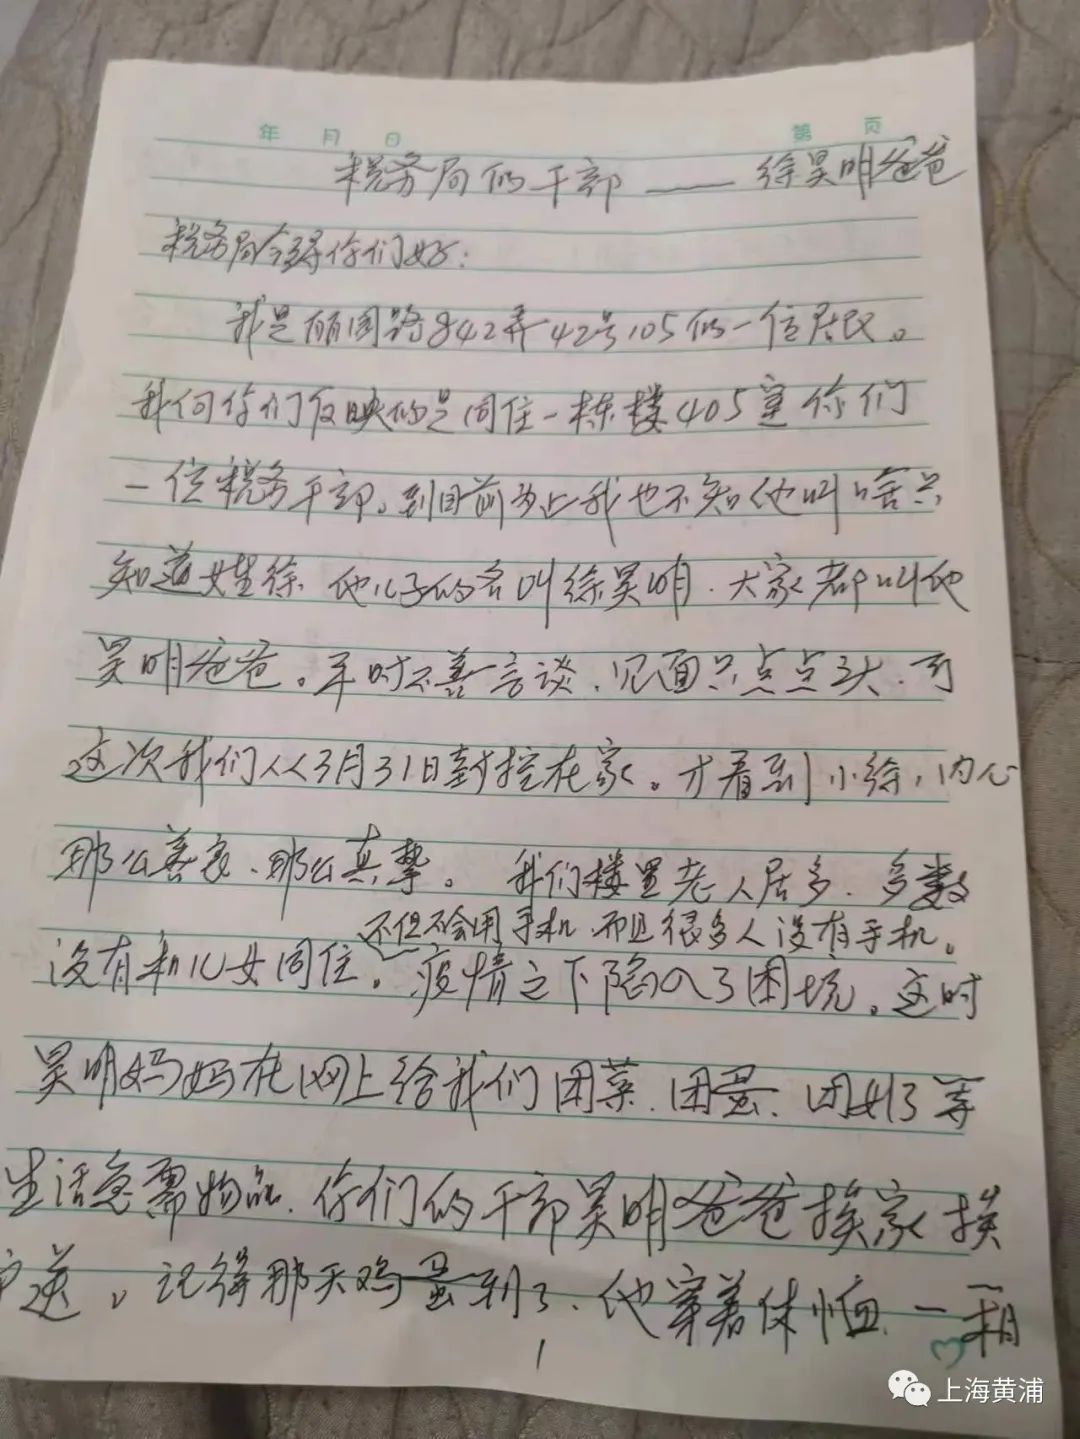 年 月 日 第 页
税务局的干部——徐昊明爸爸
税务局领导你们好：
我是丽园路842弄42号105的一位居民。
我向你们反映的是同住一栋楼405室你们
一位税务干部。到目前为止我也不知他叫啥只
知道姓徐、他儿子的名叫徐昊明、大家都叫他
昊明爸爸。平时不善言谈、见面只点点头、可
这次我们从3月31日封控在家。才看到小徐，内心
那么善良、那么真挚。我们楼里老人居多、多数
不但不会用手机、而且很多人没有手机。
没有和儿女同住。疫情之下陷入了困境。这时
昊明妈妈在网上给我们团菜、团蛋、团奶等
生活急需物品、你们的干部昊明爸爸挨家挨
户送。记得那天鸡蛋到了、他穿着休恤、一箱一
1
上海黄浦